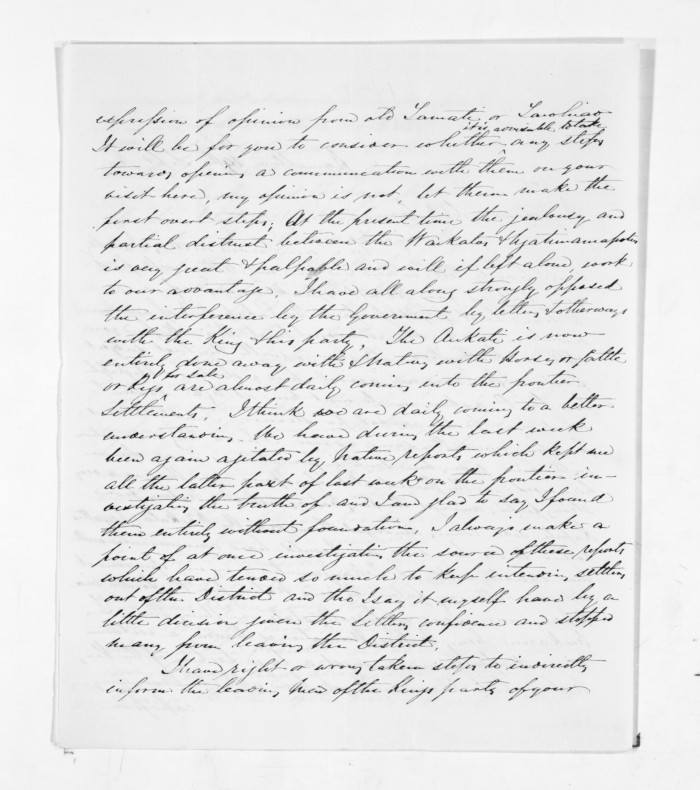 expression of opinion from old Tamati or Tawhiao
it is advisable to take
It will be for you to consider whether any steps
towards opening a communication with them on your
visit here, my opinion is not, let them make the
first overt steps, At the present time the jealousy and
partial distrust between the Waikatos & Ngatimaniapotos
is very great & palpable and will if left alone work
to our advantage. I have all along strongly opposed
the interference by the Government by letters & otherways
with the King & his party. The Aukati is now
entirely done away with & natives with Horses or Cattle
for sale
or Pigs are almost daily coming into the frontier
Settlements. I think we are daily coming to a better
understanding. We have during the last week
been again agitated by Native reports which kept me
all the latter part of last week on the frontier in-
vestigating the truth of and I am glad to say I found
them entirely without foundation. I always make a
point of at once investigating the source of these reports
which have tended so much to keep intending settlers
out of the District and tho I say it myself have by a
little decision given the settlers confidence and stopped
many from leaving the District.
I have right or wrong taken steps to indirectly
inform the leading men of the Kings party of your